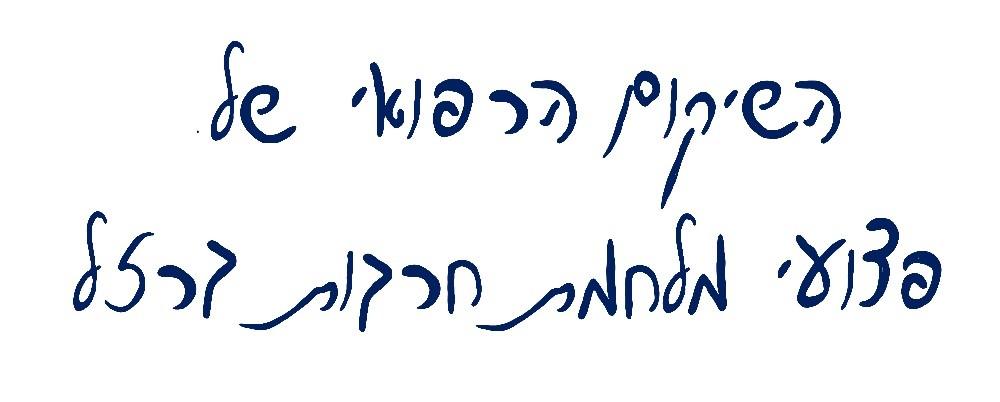 השיקום הרפואי של
פצועי מלחמת חרבות ברזל